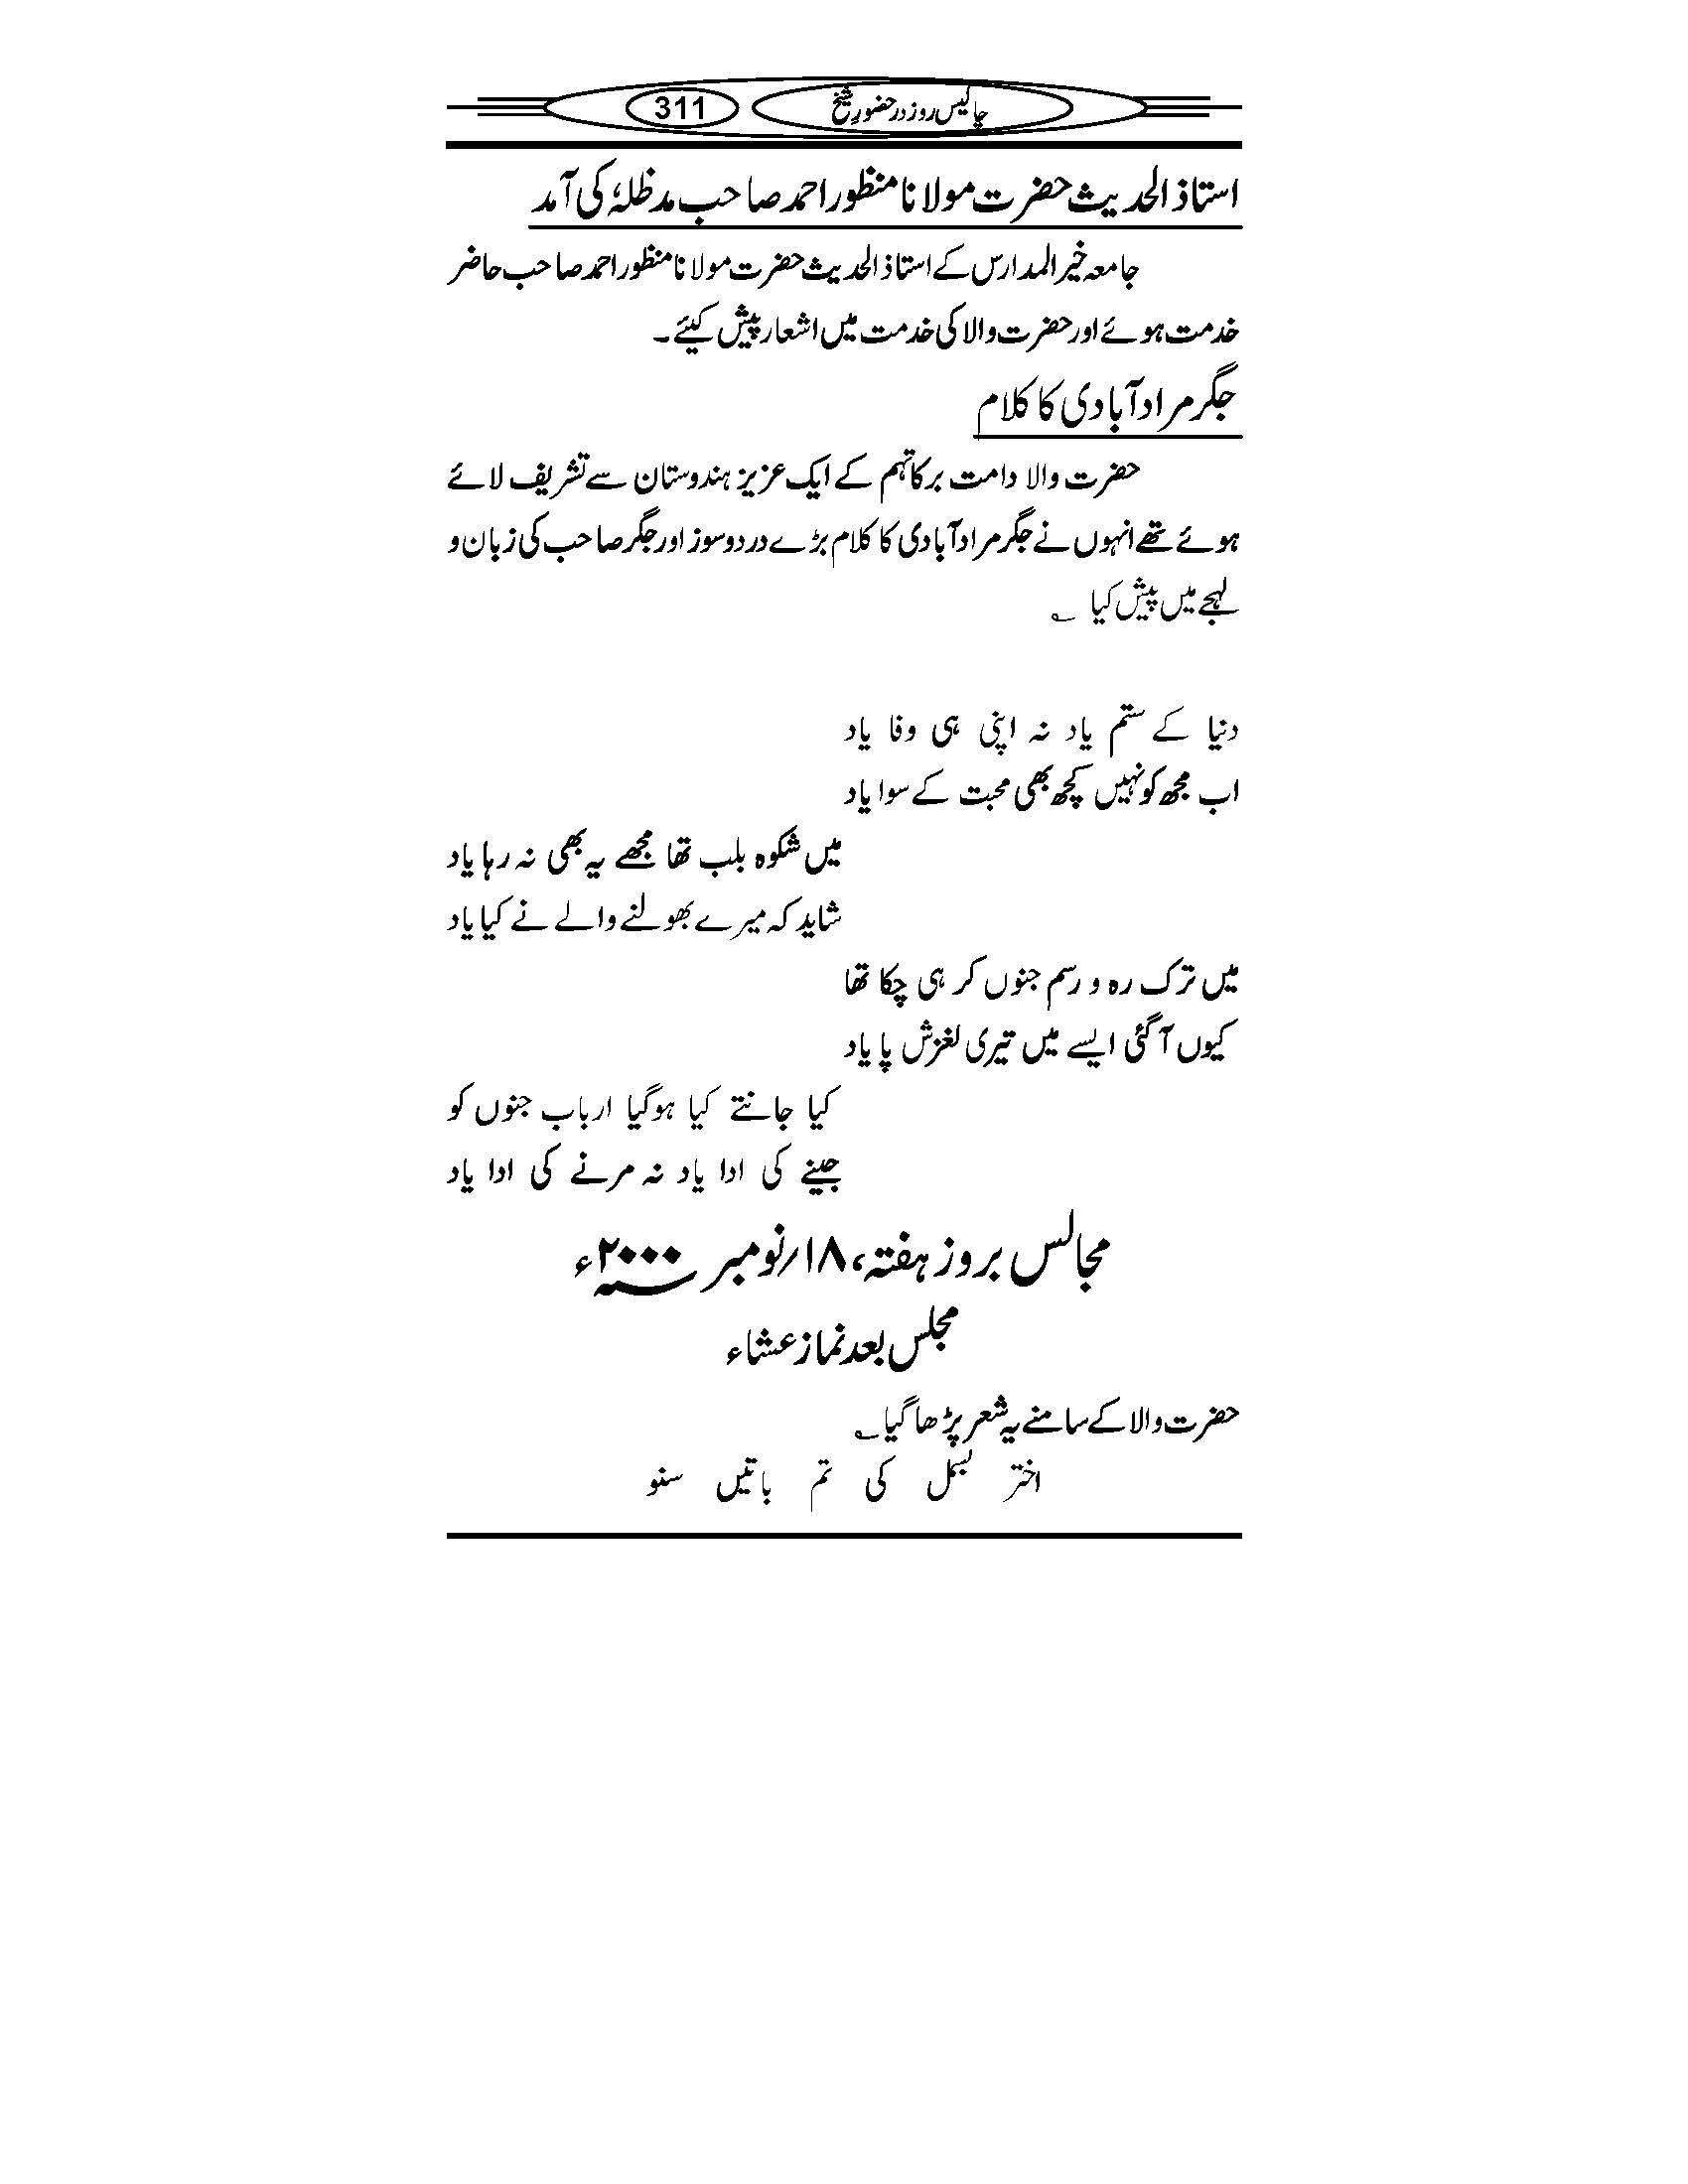 چالیس روز در حضورِ شیخ 311
استاذ الحدیث حضرت مولانا منظور احمد صاحب مدظلہٗ کی آمد
جامعہ خیر المدارس کے استاذ الحدیث حضرت مولانا منظور احمد صاحب حاضر
خدمت ہوئے اور حضرت والا کی خدمت میں اشعار پیش کیئے۔
جگر مراد آبادی کا کلام
حضرت والا دامت برکاتہم کے ایک عزیز ہندوستان سے تشریف لائے
ہوئے تھے انہوں نے جگر مراد آبادی کا کلام بڑے درد و سوز اور جگر صاحب کی زبان و
لہجے میں پیش کیا ؎
دنیا کے ستم یاد نہ اپنی ہی وفا یاد
اب مجھ کو نہیں کچھ بھی محبت کے سوا یاد
میں شکوہ بلب تھا مجھے یہ بھی نہ رہا یاد
شاید کہ میرے بھولنے والے نے کیا یاد
میں ترک رہ و رسم جنوں کر ہی چکا تھا
کیوں آ گئی ایسے میں تیری لغزش پا یاد
کیا جانتے کیا ہوگیا ارباب جنوں کو
جینے کی ادا یاد نہ مرنے کی ادا یاد
مجالس بروز ہفتہ، ۱۸/نومبر ۲۰۰۰؁ء
مجلس بعد نماز عشاء
حضرت والا کے سامنے یہ شعر پڑھا گیا ؎
اختر بسمل کی تم باتیں سنو